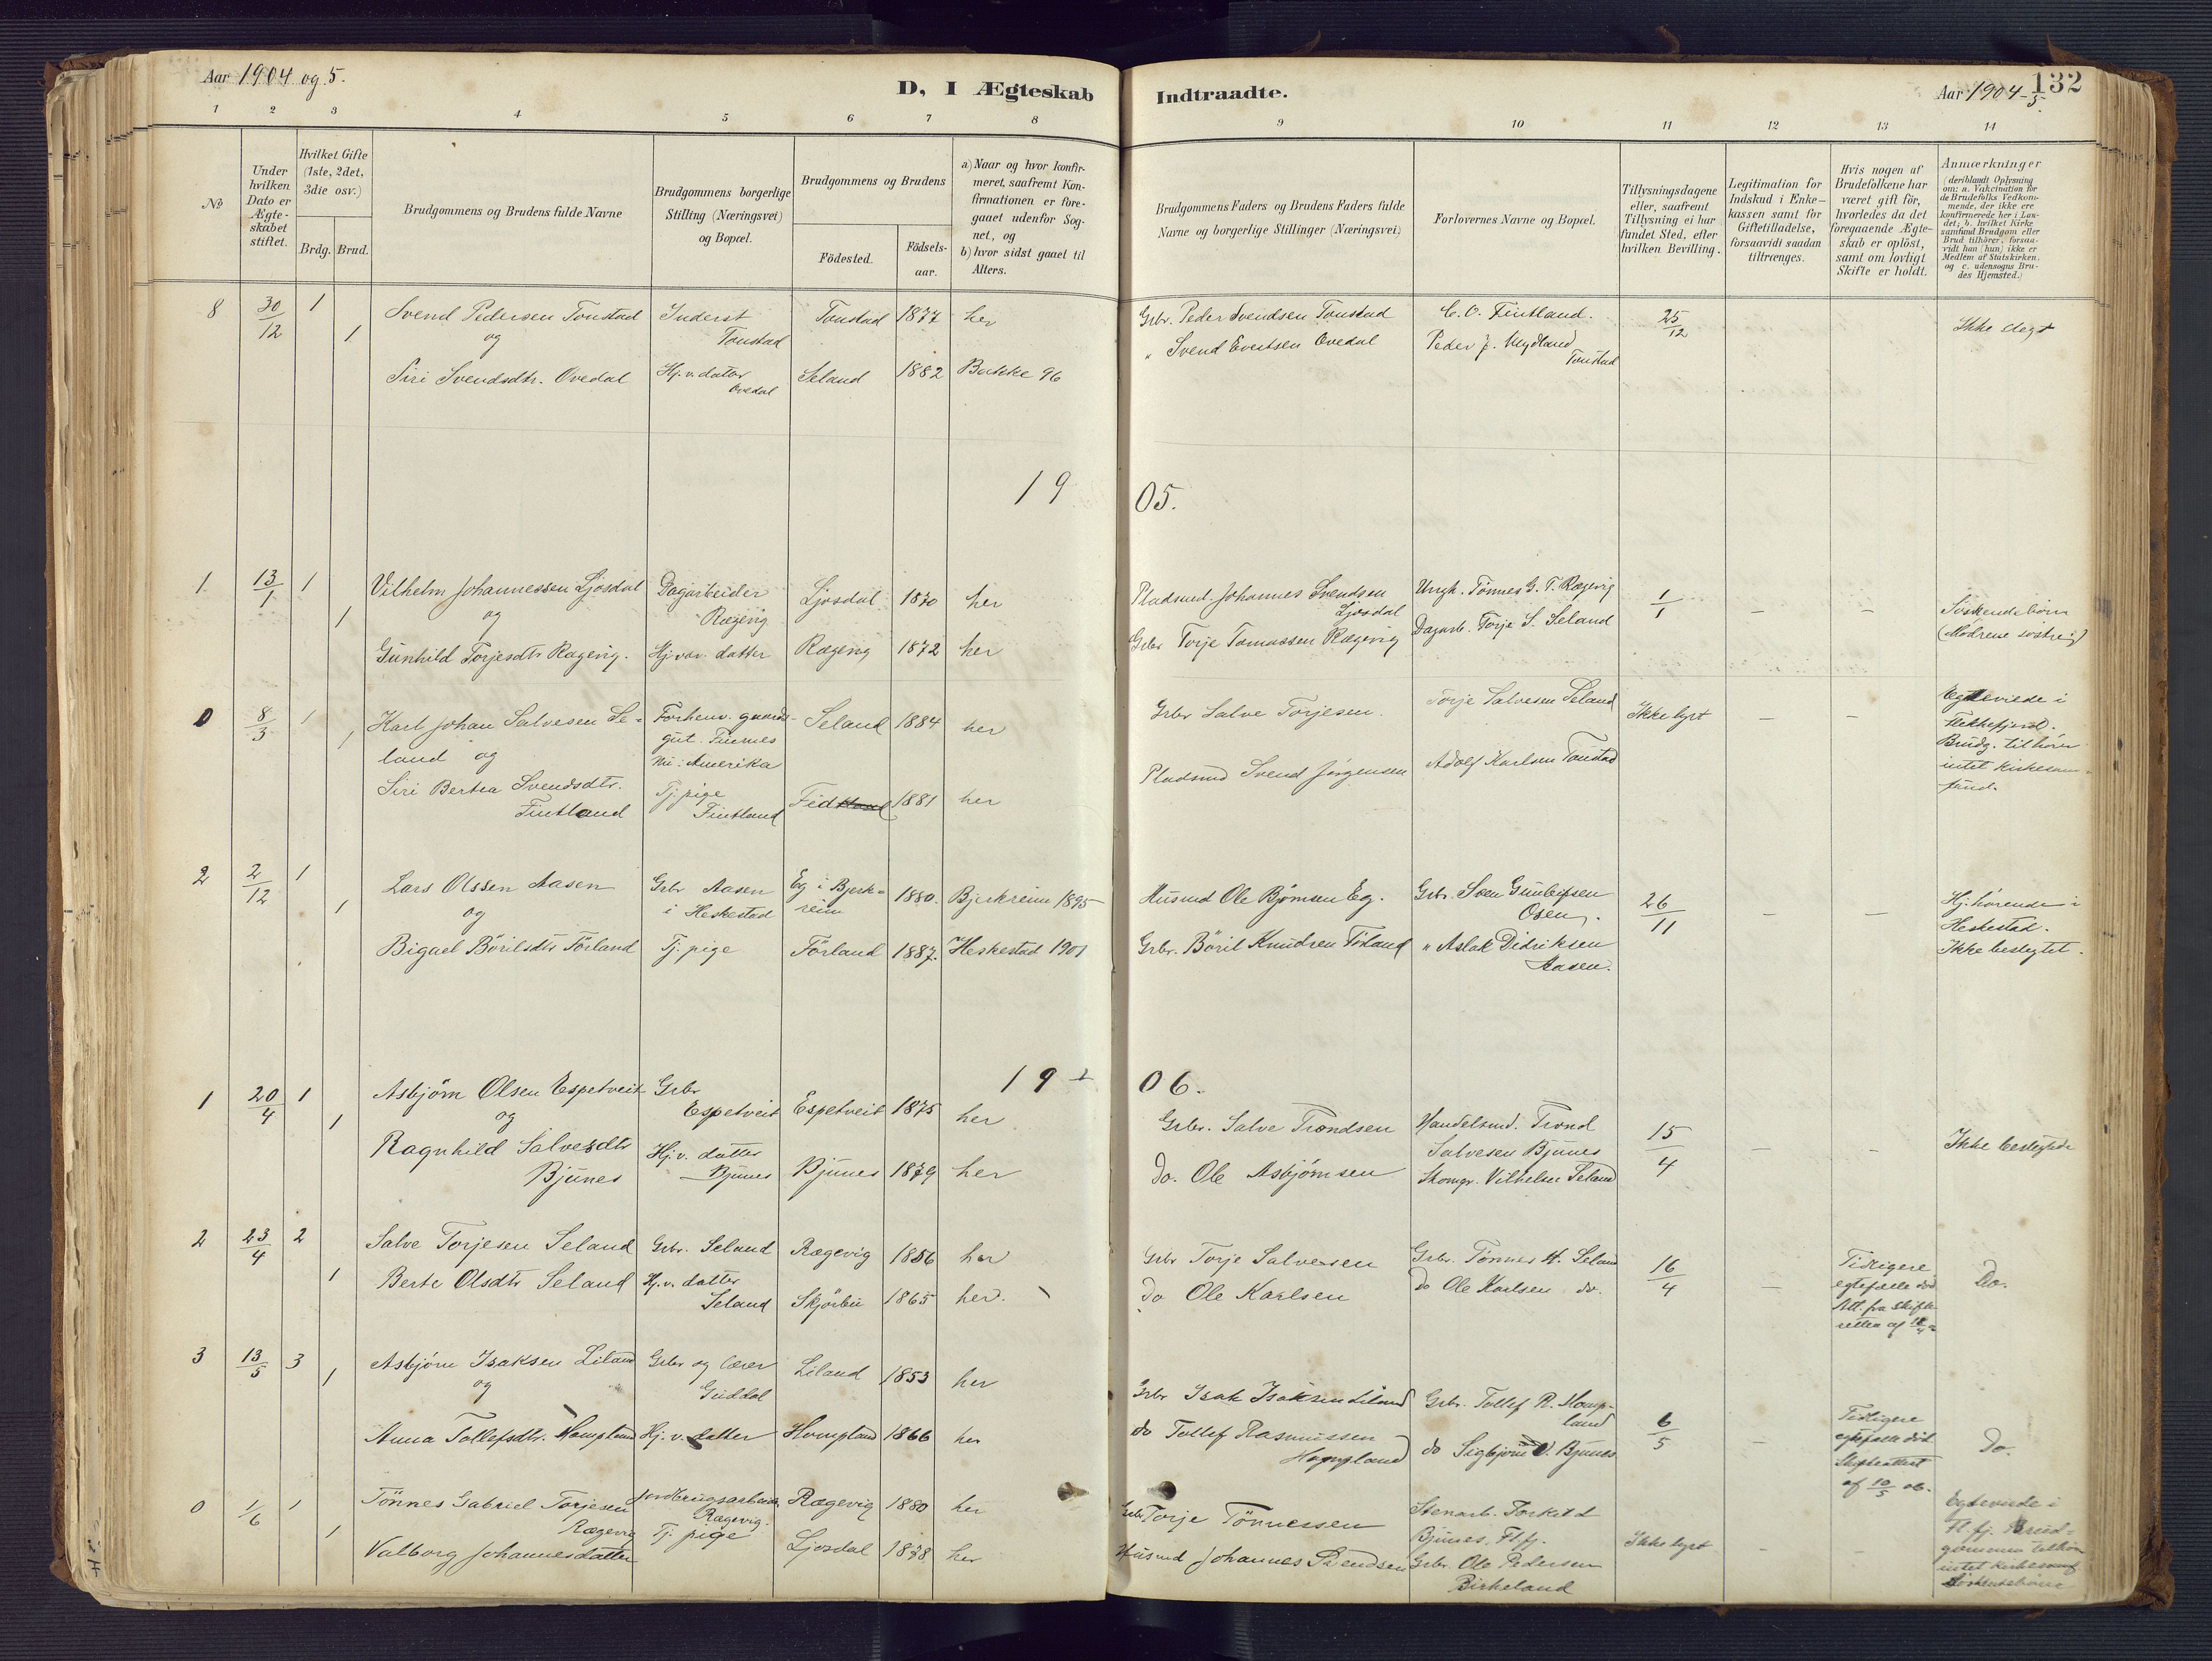 Aar 1904 og 5.
D, I Ægteskab Indtraadte.
Aar 1904-5.
132
1 2 3 4 5 6 7 8 9 10 11 12 13 14
No
Under hvilken Dato er Ægteskabet stiftet.
Hvilket Gifte (1ste, 2det, 3die osv.)
Brdg. Brud.
Brudgommens og Brudens fulde Navne
Brudgommens borgerlige Stilling (Næringsvei) og Bopæl.
Brudgommens og Brudens
Födested.
Födselsaar.
a) Naar og hvor konfirmeret, saafremt Konfirmationen er foregaaet udenfor Sognet, og
b) hvor sidst gaaet til Alters.
Brudgommens Faders og Brudens Faders fulde Navne og borgerlige Stillinger (Næringsvei)
Forlovernes Navne og Bopæl.
Tillysningsdagene eller, saafremt Tillysning ei har fundet Sted, efter hvilken Bevilling.
Legitimation for Indskud i Enkekassen samt for Giftetilladelse, forsaavidt saadan tiltrænges.
Hvis nogen af Brudefolkene har været gift för, hvorledes da det foregaaende Ægteskab er oplöst, samt om lovligt Skifte er holdt.
Anmærkninger
(deriblandt Oplysning om: a. Vakcination for de Brudefolks Vedkommende, der ikke ere konfirmerede her i Landet; b. hvilket Kirkesamfund Brudgom eller Brud tilhörer, forsaavidt han (hun) ikke er Medlem af Statskirken. og c. udensogns Brudes Hjemsted.)
8 30/12 1 Svend Pedersen Tonstad Inderst Tonstad Tonstad 1877 her Grbr. Peder Svendsen Tonstad C. O. Fintland. 25/12 Ikke slegt
og
1 Siri Svendsdtr. Ovedal Hj. v. datter Ovedal Seland 1882 Bakke 96 " Svend Evertsen Ovedal Peder Mydland Tonstad
19 05.
1 13/1 1 Vilhelm Johannessen Ljosdal Dagarbeider Rægevig Ljosdal 1870 her Pladsmd. Johannes Svendsen Ljosdal Ungk. Tønnes G. T. Rægevig 1/1 - - Söskendebörn
og
1 Gunhild Torjesdtr Rægevig. Hj. vær. datter Rægevig 1872 her Grbr Torje Tomassen Rægevig Dagarb. Torje S. Seland (Mödrene söstre)
0 8/3 1 Karl Johan Salvesen Seland Forhenv. gaardsgut. Nu i Amerika Seland 1884 her Grbr Salve Torjesen. Torje Salvesen Seland Ikke lyst - - Egteviede i Flekkefjord. Brudg. tilhörer intet kirkesamfund.
og
1 Siri Bertea Svendsdtr. Fintland Tj. pige Fintland 1881 her Pladsmd Svend Jörgensen Adolf Karlsen Tonstad
2 2/12 1 Lars Olssen Aasen Grbr Aasen i Heskestad Eg i Bjerkreim 1880. Bjerkreim 1895 Husmd Ole Björnsen Eg. Grbr. Sven Gunleifsen Osen. 26/11 - - Hj. hörende i Heskestad. Ikke beslegtet.
og
1 Bigael Börilsdtr Törland Tj. pige Törland 1887. Heskestad 1901 Grbr. Böril Knudsen Törland " Aslak Didriksen Aasen.
19 06.
1 20/4 1 Asbjörn Olsen Espetveit Grbr Espetveit Espetveit 1875 her Grbr. Salve Trondsen Handelsmd. Trond Salvesen Bjunes 15/4 - - Ikke beslegtede
og
1 Ragnhild Salvesdtr Bjunes Hj. v. datter Bjunes Bjunes 1879 her do. Ole Asbjörnsen Skomgr. Vilhelm Seland
2 23/4 2 Salve Torjesen Seland Grbr. Seland Rægevig 1856 her Grbr Torje Salvesen Grbr. Tönnes H. Seland 16/4 - Tidligere egtefælle död Att. fra skifteretten af Do.
1 Berte Olsdtr Seland Hj. v. datter Seland Skjörbu 1865 her. do Ole Karlsen do Ole Karlsen do.
3 13/5 3 Asbjörn Isaksen Liland Grbr og lærer Guddal Liland 1853 her Grbr Isak Isaksen Liland Grbr. Tollef R. Hompland 6/5 - Tidligere egtefælle död Skifteattest af 10/5 06. Do.
og
1 Anna Tollefsdtr. Hompland Hj. v. datter Hompland 1866 her do Tollef Rasmussen Hompland do Sigbjörn O. Bjunes
0 1/6 1 Tönnes Gabriel Torjesen Rægevig Jordbrugsarbeider, Rægevig. Rægevig 1880 her Grbr Torje Tönnessen Stenarb. Torkild Bjunes, Ff. Ikke lyst - - Egteviede i Fl. fj. Brudgommen tilhörer intet kirkesamf Söskendebörn
1 Valborg Johannesdatter Tj. pige Ljosdal 1878 her Husmd Johannes Svendsen Grbr. Ole Pedersen Birkeland